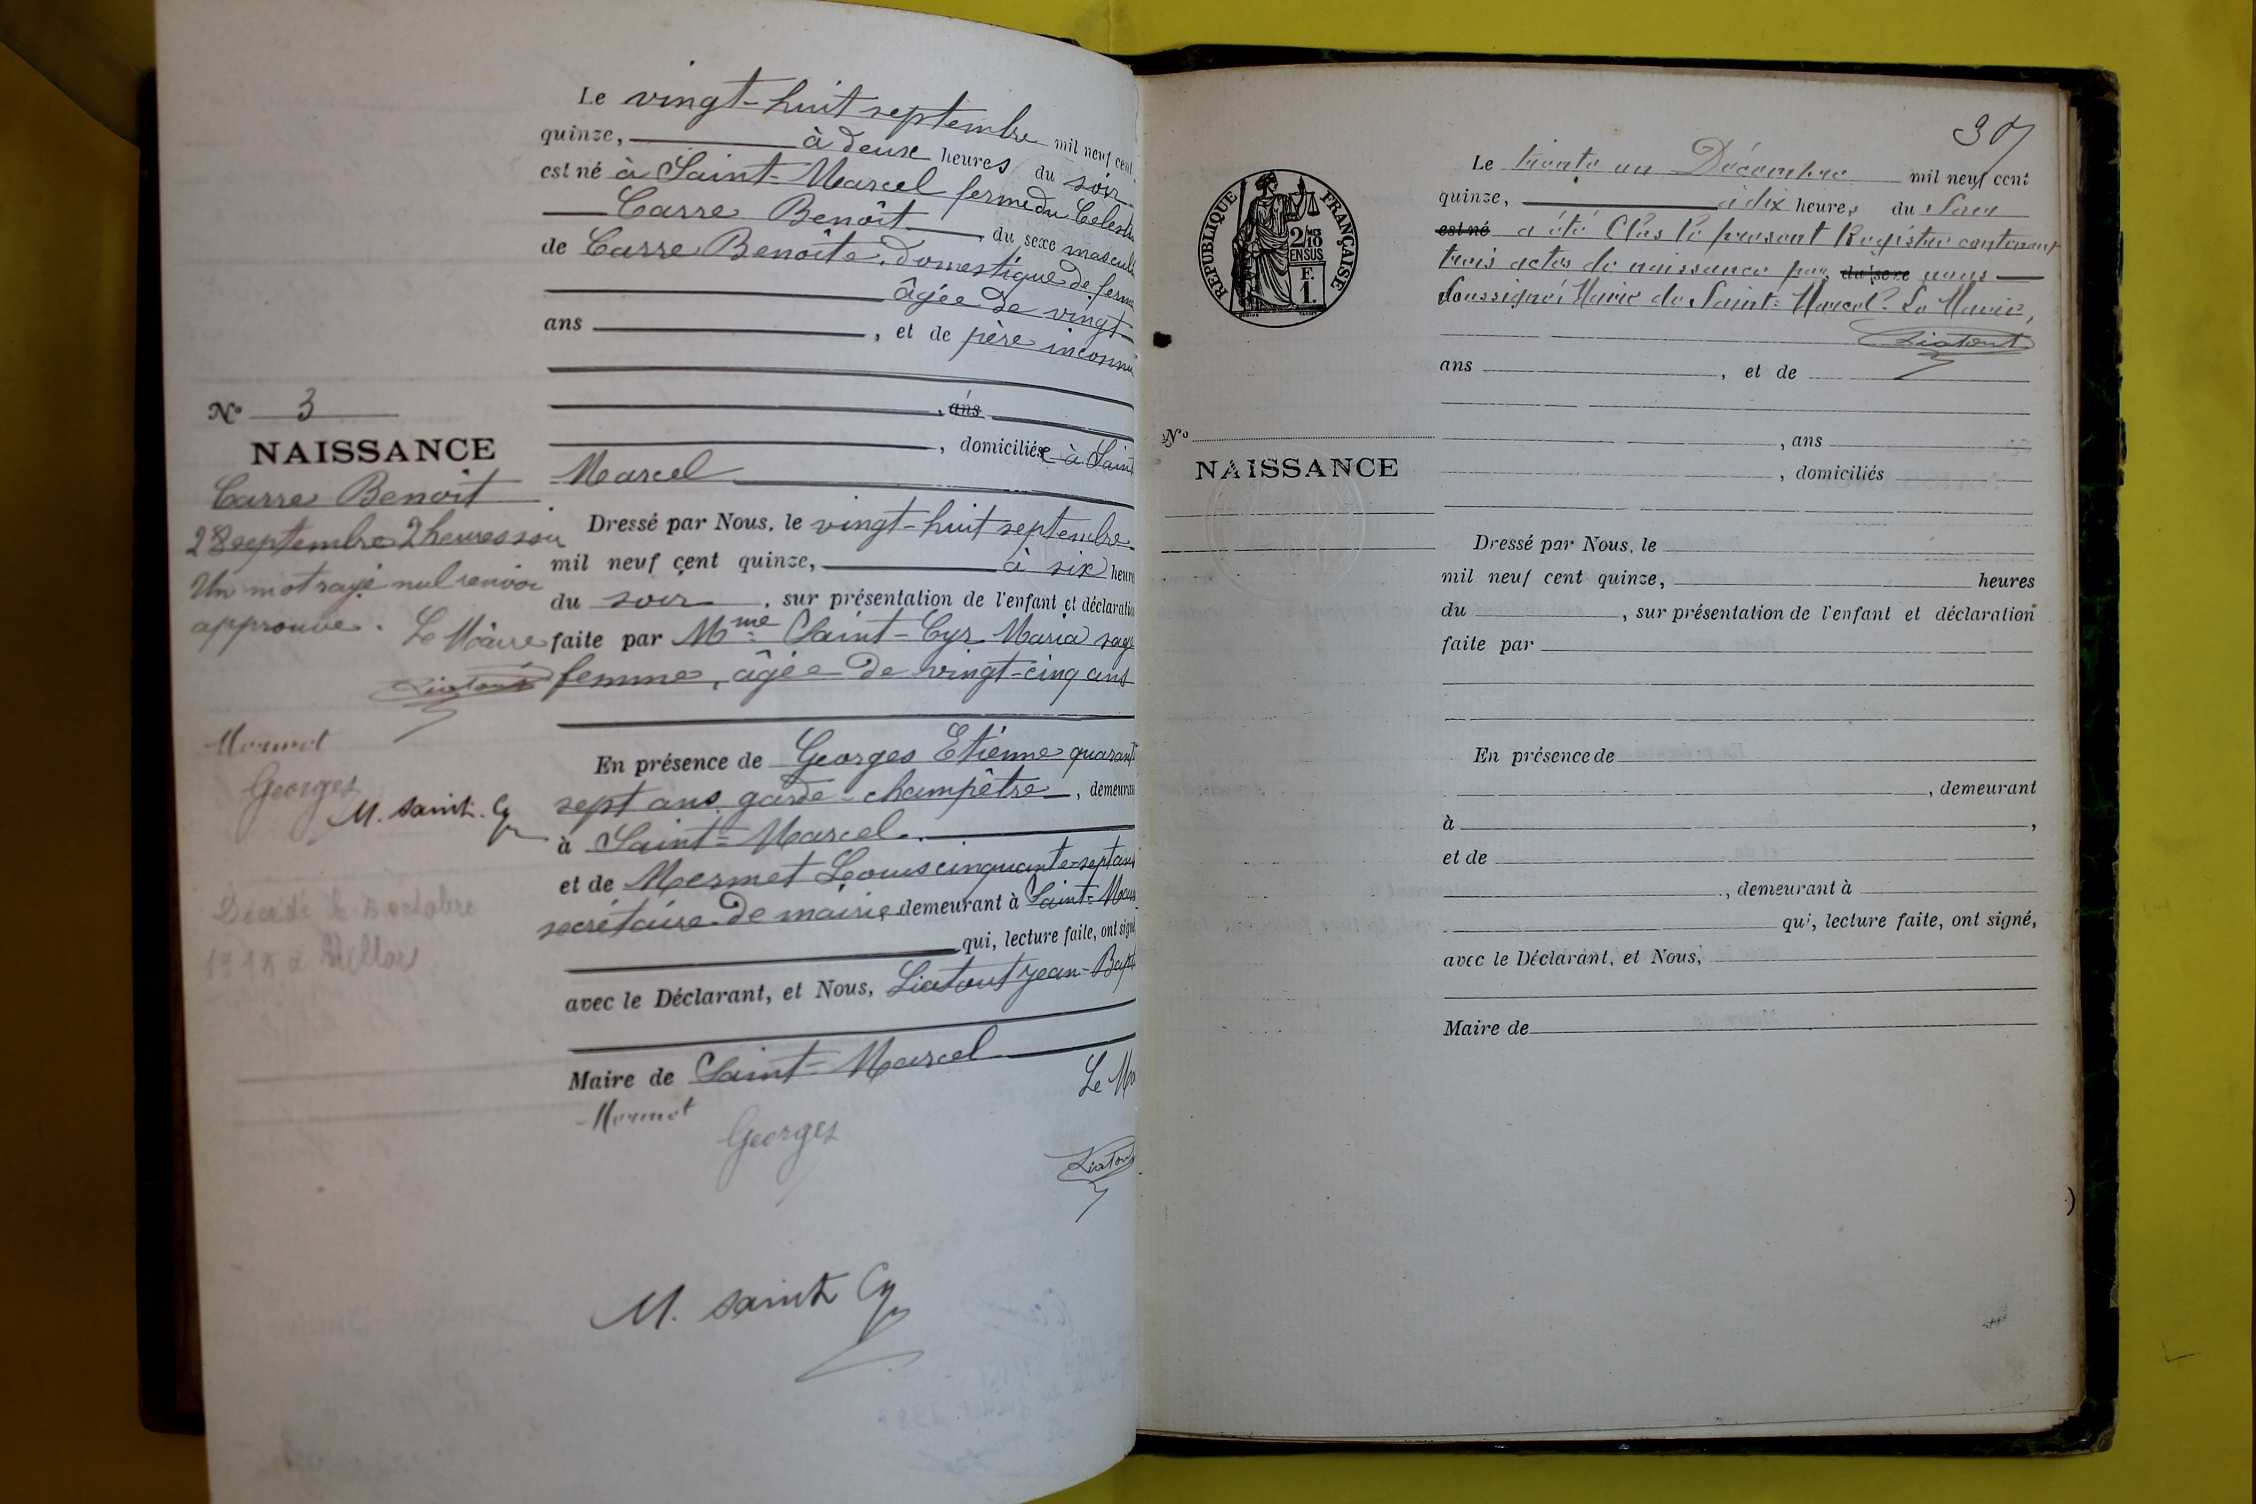 Le vingt-huit septembre mil neuf cent
quinze, à deux heures du soir
est né à Saint-Marcel ferme du
Carre Benoît, du sexe mascul
de Carre Benoîte, domestique de ferme
âgée de vingt
ans, et de père inconnu
, ans
, domiciliés à Saint
Marcel
N° 3
NAISSANCE
Carre Benoît
28 septembre 2 heures soir
Un mot rayé nul renvoi
approuvé. Le Maire
Liatout
Mermet
Georges
M. Saint-Cyr
Décédé le 5 octobre
Dressé par Nous, le vingt-huit septembre
mil neuf cent quinze, à six heures
du soir, sur présentation de l'enfant et déclaration
faite par Mme Saint-Cyr Maria sage
femme, âgée de vingt-cinq ans
En présence de Georges Etienne quarant
sept ans garde-champêtre, demeurant
à Saint-Marcel.
et de Mermet Louis cinquante-sept ans
secrétaire de mairie demeurant à Saint-Marc
qui, lecture faite, ont signé
avec le Déclarant, et Nous, Liatout Jean-Bapt
Maire de Saint-Marcel
Le Ma
Mermet
Georges
Liatout
M. Saint Cyr
RÉPUBLIQUE FRANÇAISE
2/10
EN SUS
F.
1.
Le trente un Décembre mil neuf cent
quinze, à dix heures du Soir
est né a été Clos le présent Registre contenant
trois actes de naissance par du sexe nous
soussigné Maire de Saint-Marcel. Le Maire,
Liatout
ans, et de
, ans
, domiciliés
N°
NAISSANCE
Dressé par Nous, le
mil neuf cent quinze, heures
du, sur présentation de l'enfant et déclaration
faite par
En présence de
, demeurant
à,
et de
, demeurant à
qui, lecture faite, ont signé,
avec le Déclarant, et Nous,
Maire de